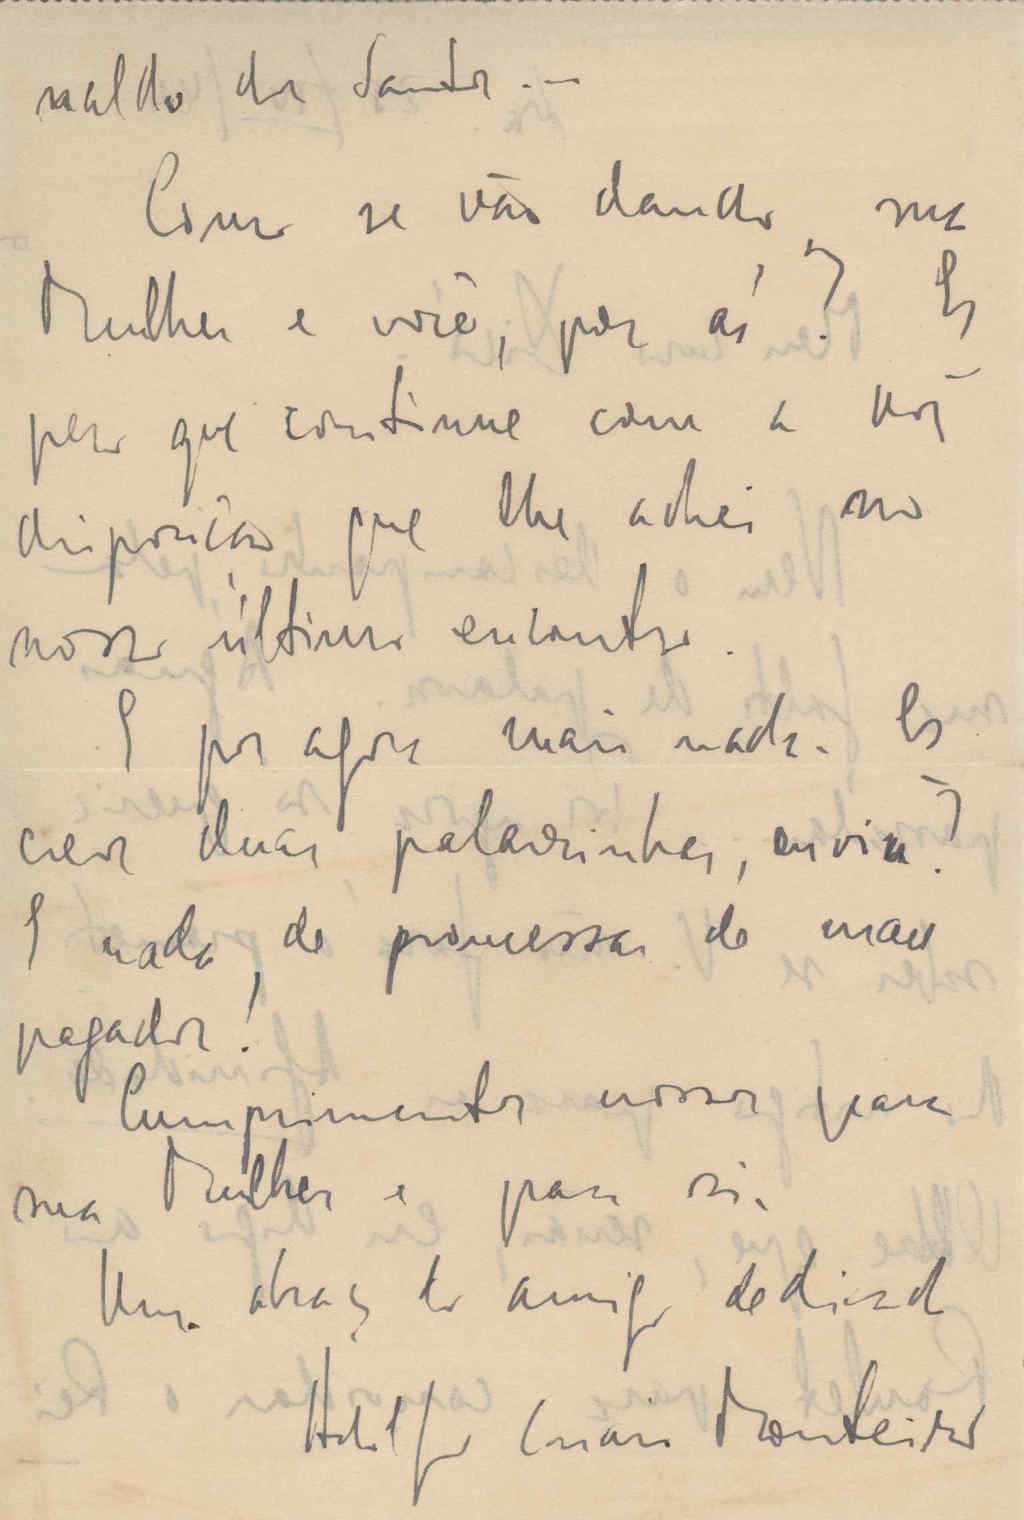 naldo dos Santos. —
Como se vão dando, sua
Mulher e você, por aí? Es
pero que continue com a boa
disposição que lhe achei no
nosso último encontro.
E por agora mais nada. Es
creva duas palavrinhas, ouviu?
E nada de promessas de mau
pagador!
Cumprimentos nossos para
sua Mulher e para si.
Um abraço do amigo dedicado
Adolfo Casais Monteiro